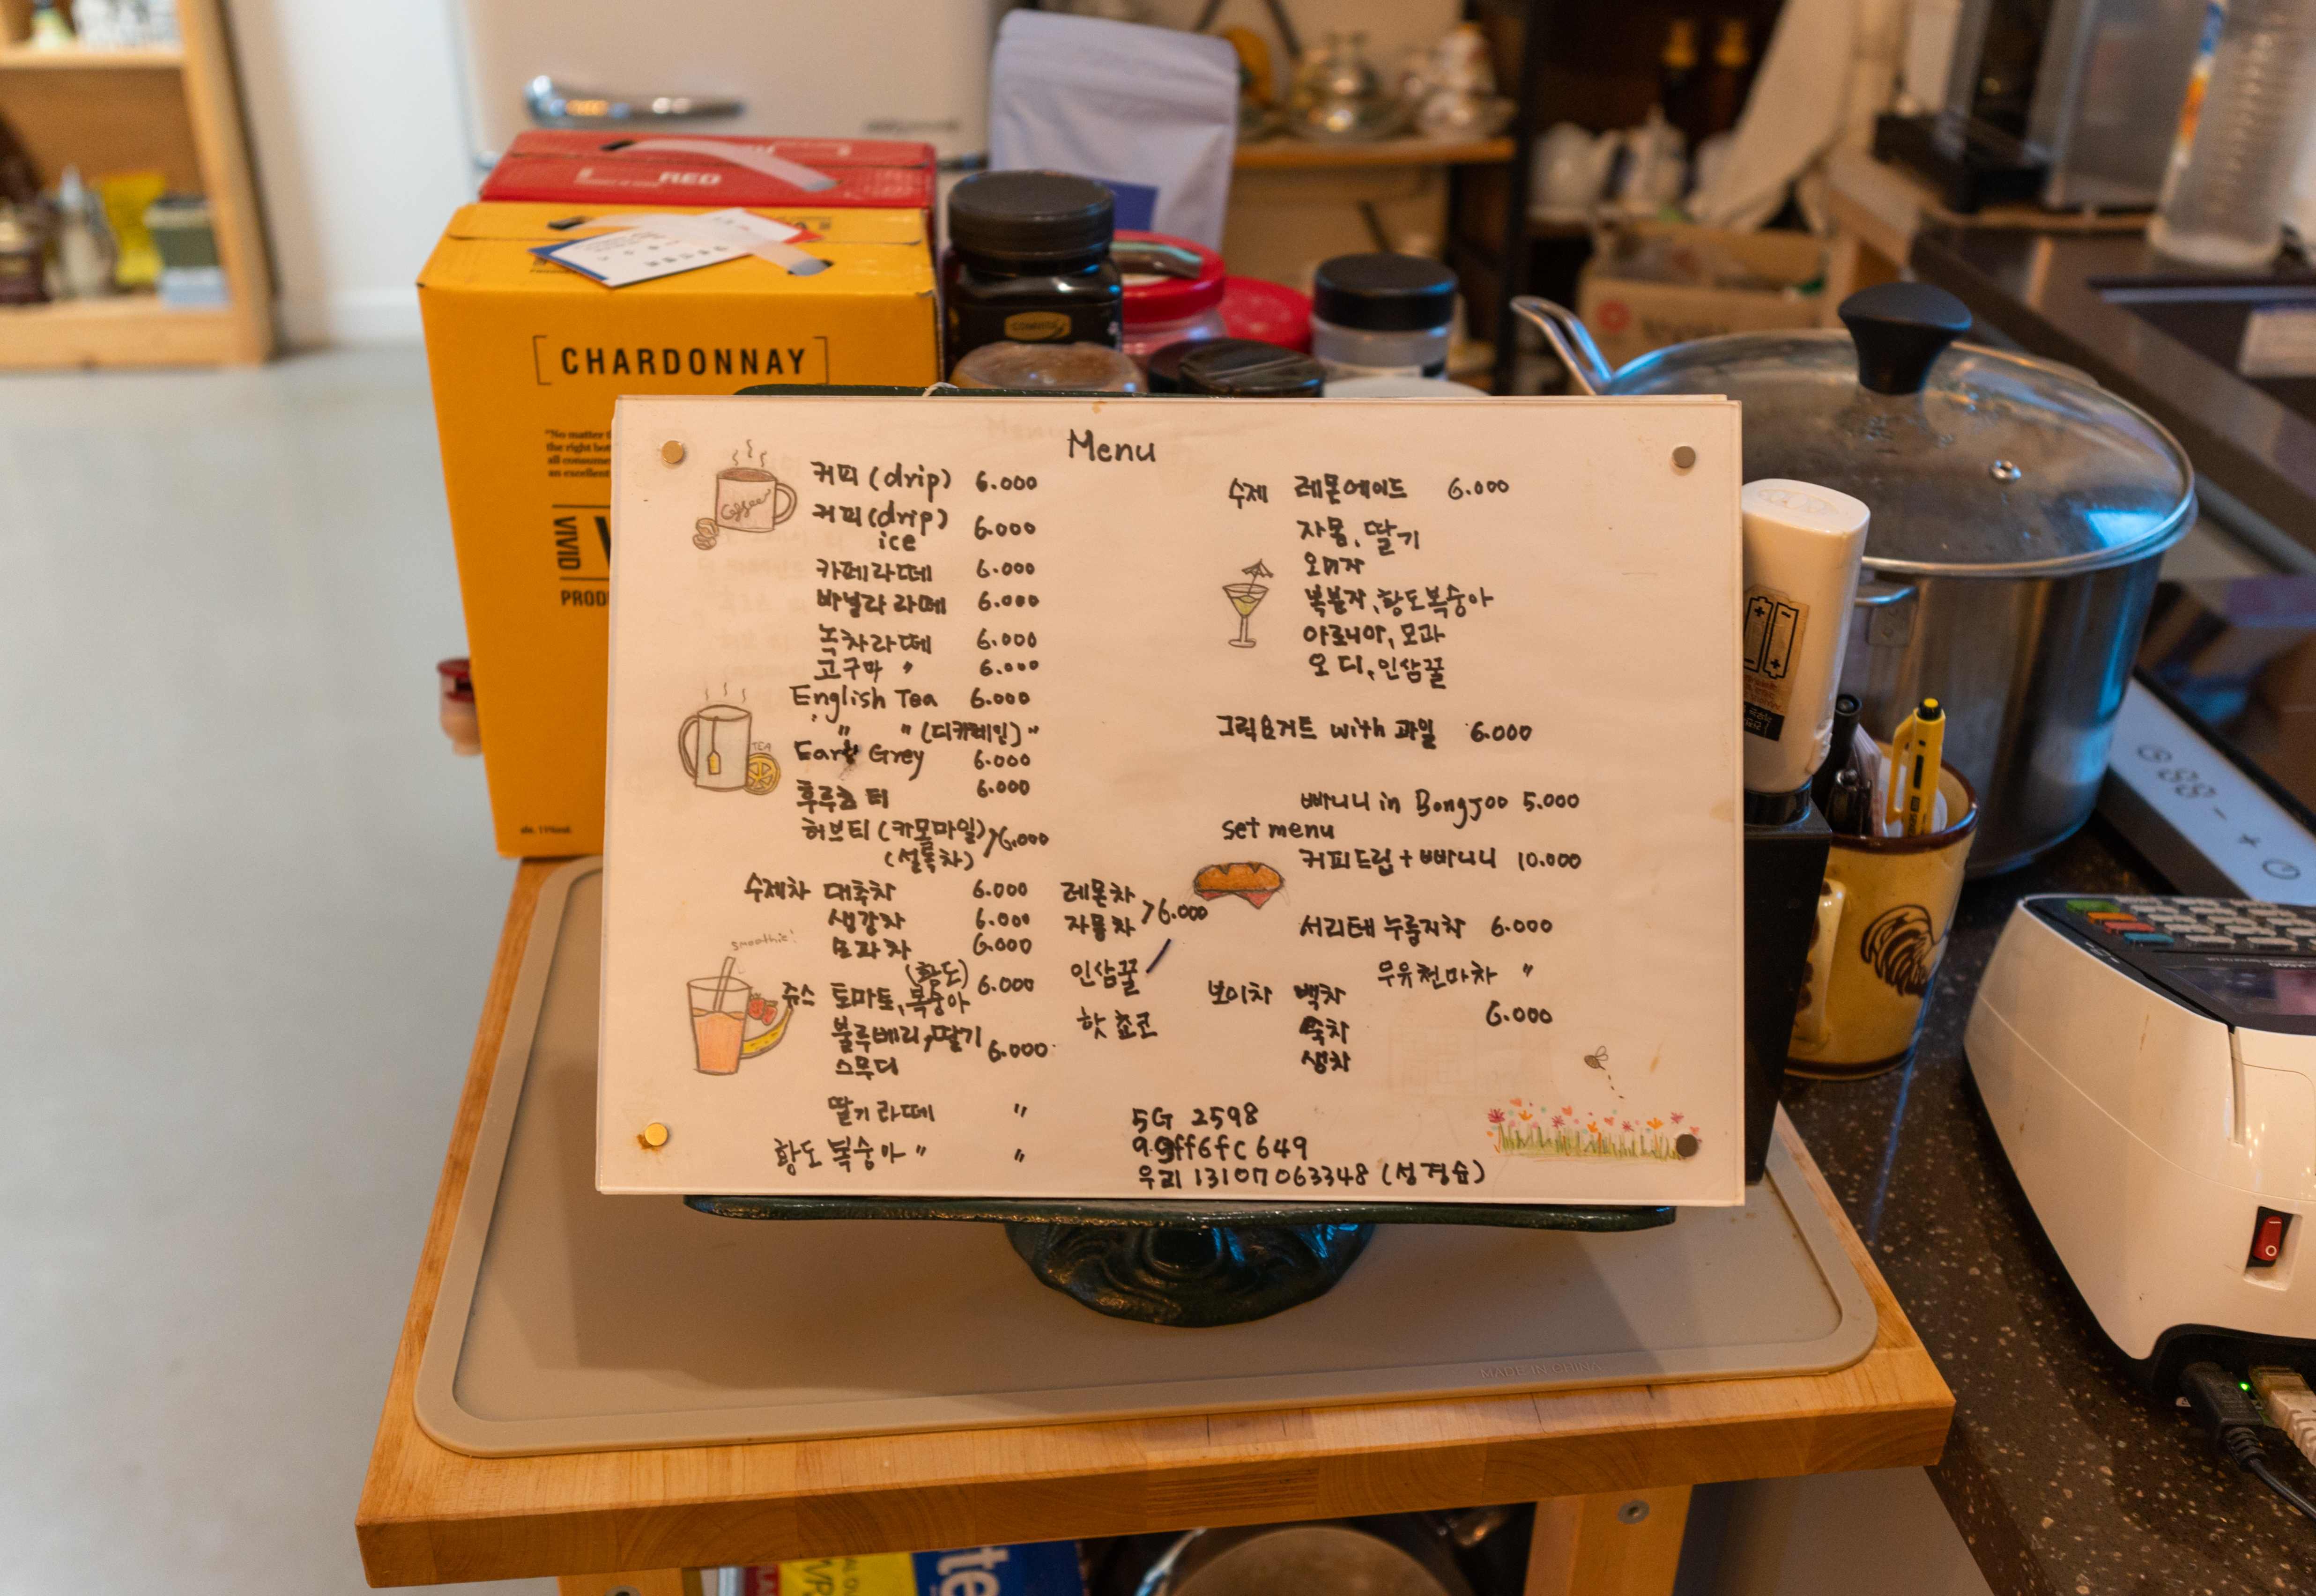 RED
CHARDONNAY
"No matter
the right bot
all consume
an excellent
VIVID
PROD
COMVITA
Menu
Coffee
커피 (drip) 6.000
커피 (drip) 6.000
ice
카페라떼 6.000
바닐라 라떼 6.000
녹차라떼 6.000
고구마 〃 6.000
English Tea 6.000
〃 〃 (디카페인) 〃
TEA
Earl Grey 6.000
후루츠 티 6.000
허브티 (카모마일) >6.000
(설록차)
수제차 대추차 6.000
생강차 6.000
모과차 6.000
smoothie!
(황도) 6.000
쥬스 토마토, 복숭아
블루베리, 딸기 6.000
스무디
딸기 라떼 〃
황도 복숭아 〃 〃
레몬차
자몽차 >6.000
인삼꿀
핫쵸코
수제 레몬에이드 6.000
자몽, 딸기
오미자
복분자, 황도복숭아
아로니아, 모과
오디, 인삼꿀
그릭요거트 with 과일 6.000
빠니니 in Bongjoo 5.000
set menu
커피드립 + 빠니니 10.000
서리태 누룽지차 6.000
우유천마차 〃
보이차 백차
6.000
숙차
생차
5G 2598
99ff6fc649
우리 13107063348 (성경숙)
MADE IN CHINA